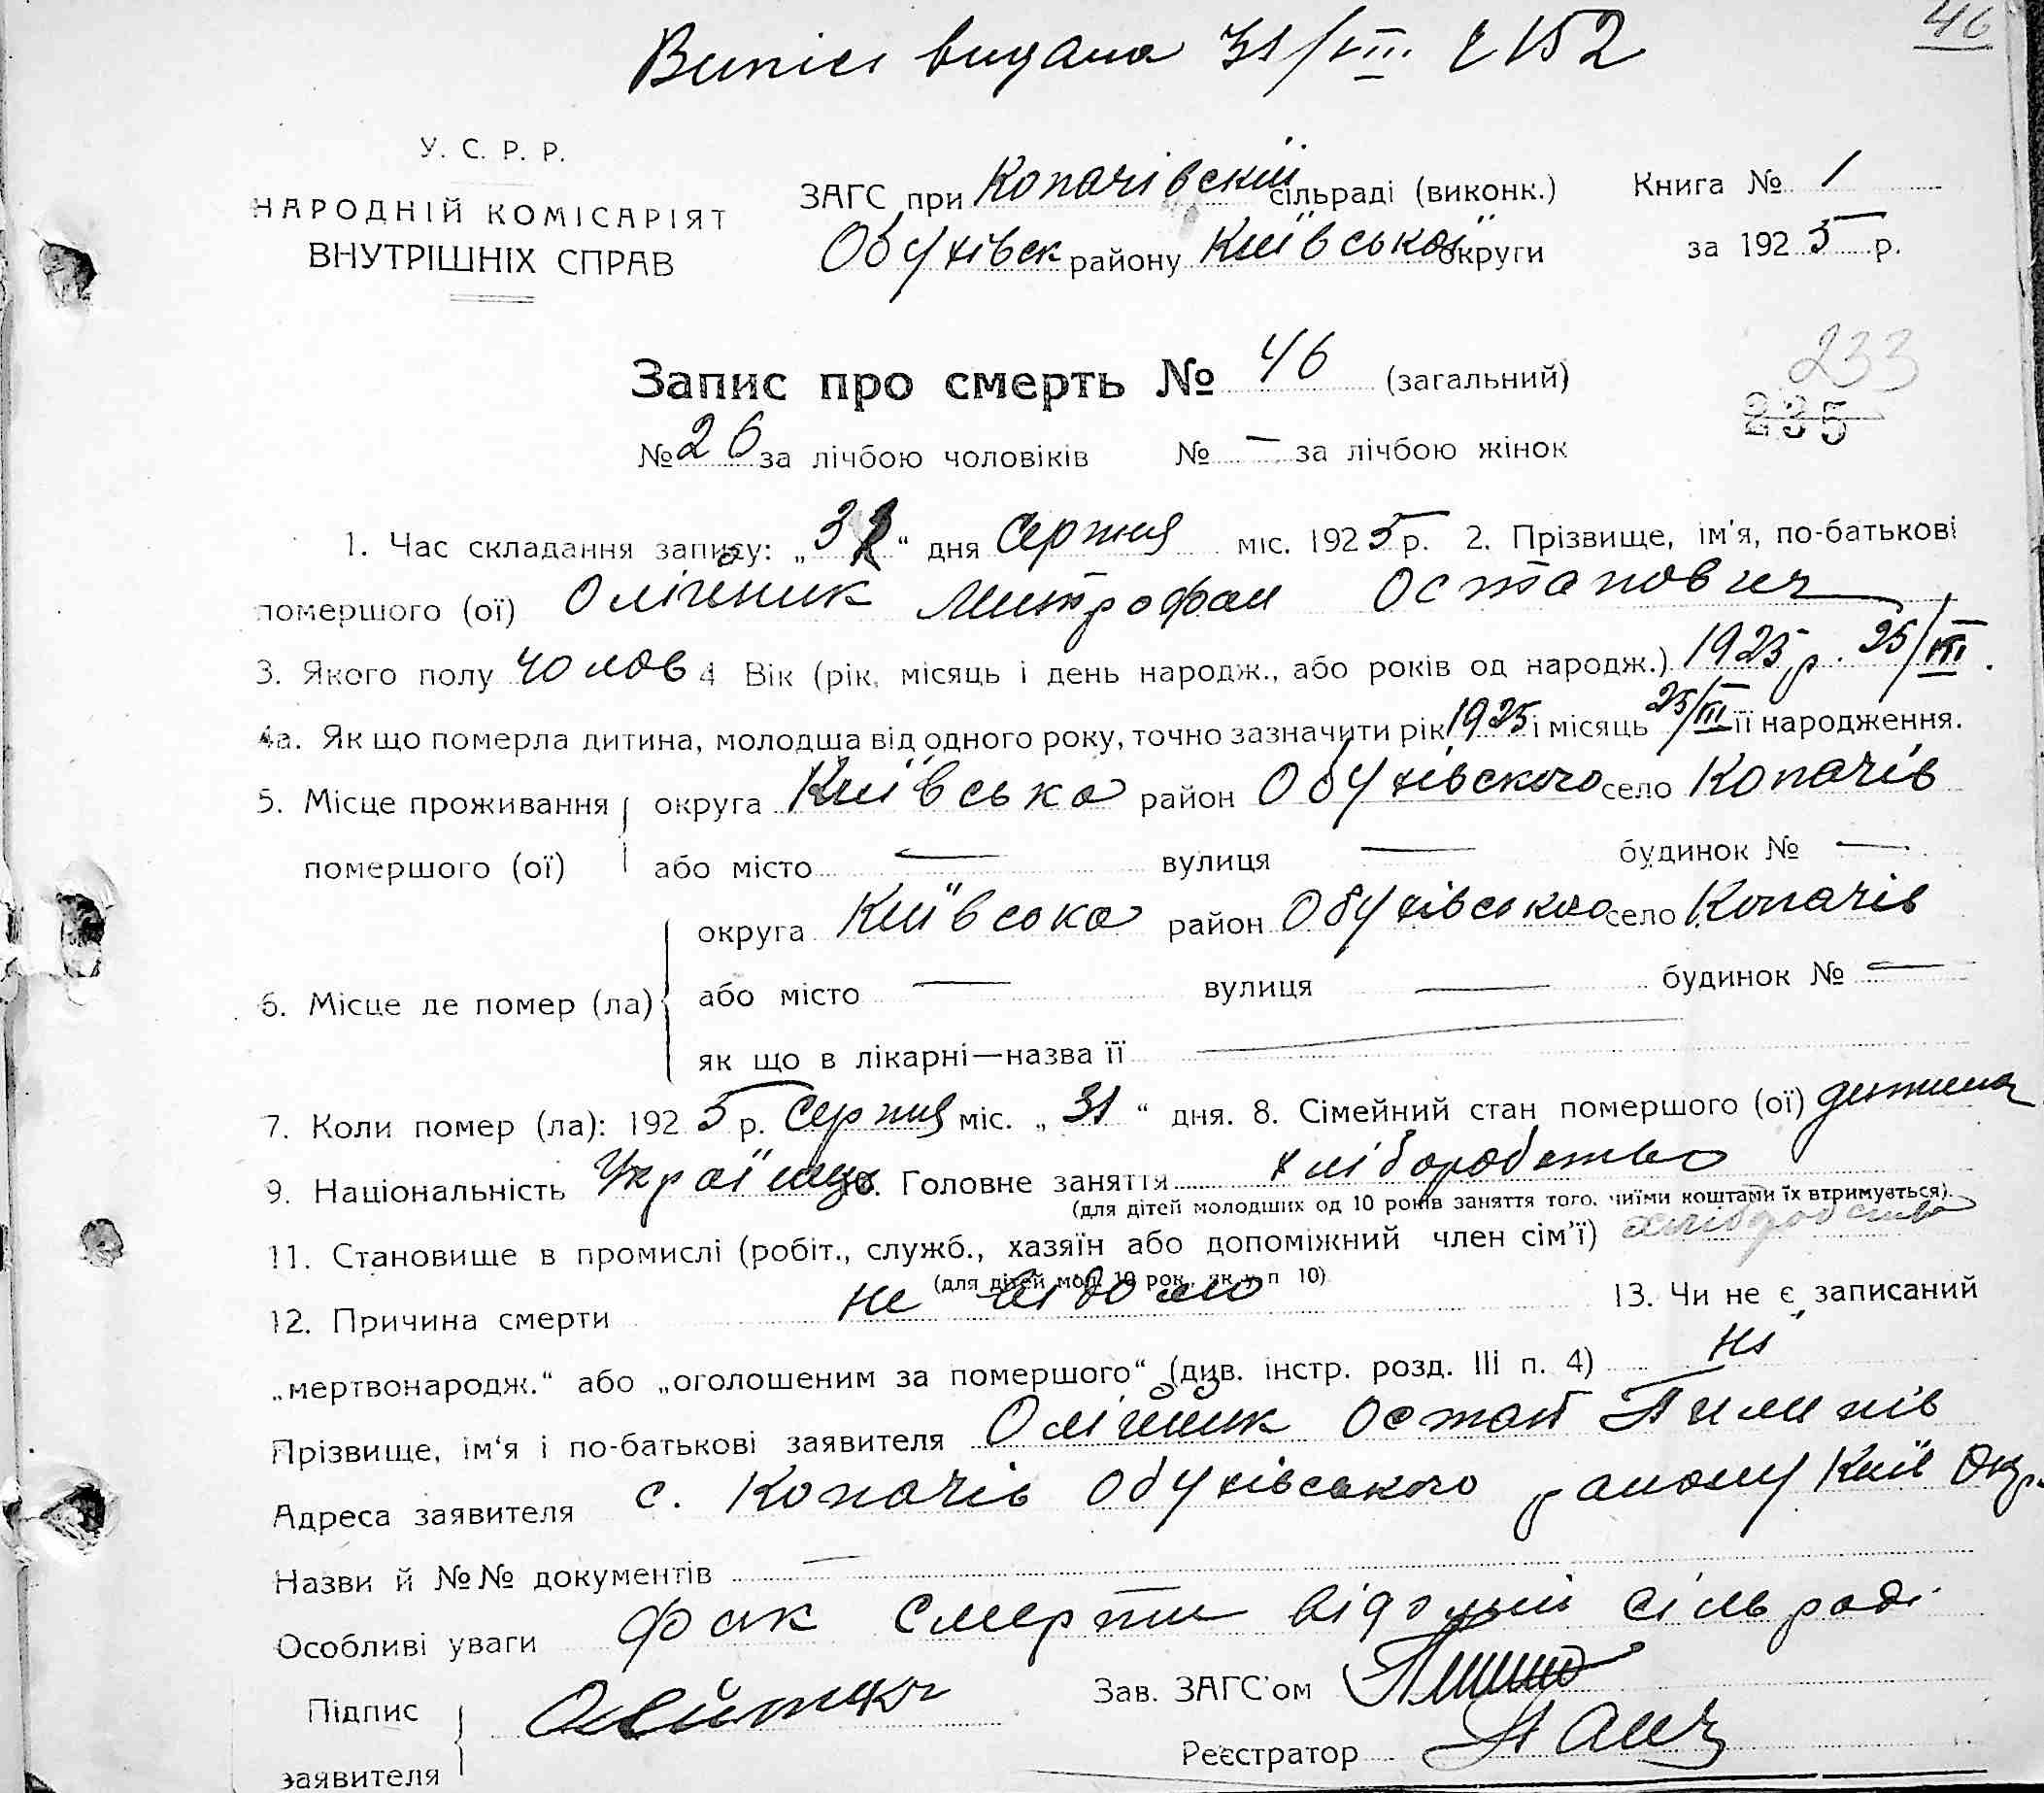 46
Випись видана 31/VIII № 152
У. С. Р. Р.
НАРОДНІЙ КОМІСАРІЯТ
ВНУТРІШНІХ СПРАВ
ЗАГС при Копачівскій сільраді (виконк.) Книга № 1
Обухівськ району Київської округи за 1925 р.
Запис про смерть № 46 (загальний)
233
235
№ 26 за лічбою чоловіків № — за лічбою жінок
1. Час складання запису: „31“ дня Серпня міс. 1925 р. 2. Прізвище, ім'я, по-батькові
помершого (ої) Олійник Митрофан Остапович
3. Якого полу чолов 4 Вік (рік, місяць і день народж., або років од народж.) 1925 р. 25/III.
4а. Як що померла дитина, молодша від одного року, точно зазначити рік 1925 і місяць 25/III її народження.
5. Місце проживання округа Київська район Обухівского село Копачів
помершого (ої) або місто — вулиця — будинок № —
округа Київська район Обухівського село Копачів
6. Місце де помер (ла) або місто — вулиця — будинок № —
як що в лікарні—назва її —
7. Коли помер (ла): 1925 р. Серпня міс. „31“ дня. 8. Сімейний стан помершого (ої) дитина
9. Національність Українць 10. Головне заняття хліборобство
(для дітей молодших од 10 років заняття того, чиїми коштами їх втримується).
11. Становище в промислі (робіт., служб., хазяїн або допоміжний член сім'ї) хліборобство
(для дітей мол. 10 рок., як у п 10)
12. Причина смерти не відомо 13. Чи не є записаний
„мертвонародж.“ або „оголошеним за помершого“ (див. інстр. розд. III п. 4) ні
Прізвище, ім'я і по-батькові заявителя Олійник Остап Пилипів
Адреса заявителя с. Копачів Обухівського району Київ Окр.
Назви й №№ документів —
Особливі уваги Фак смерти відомий сільраді
Підпис Зав. ЗАГС'ом
Реєстратор
заявителя